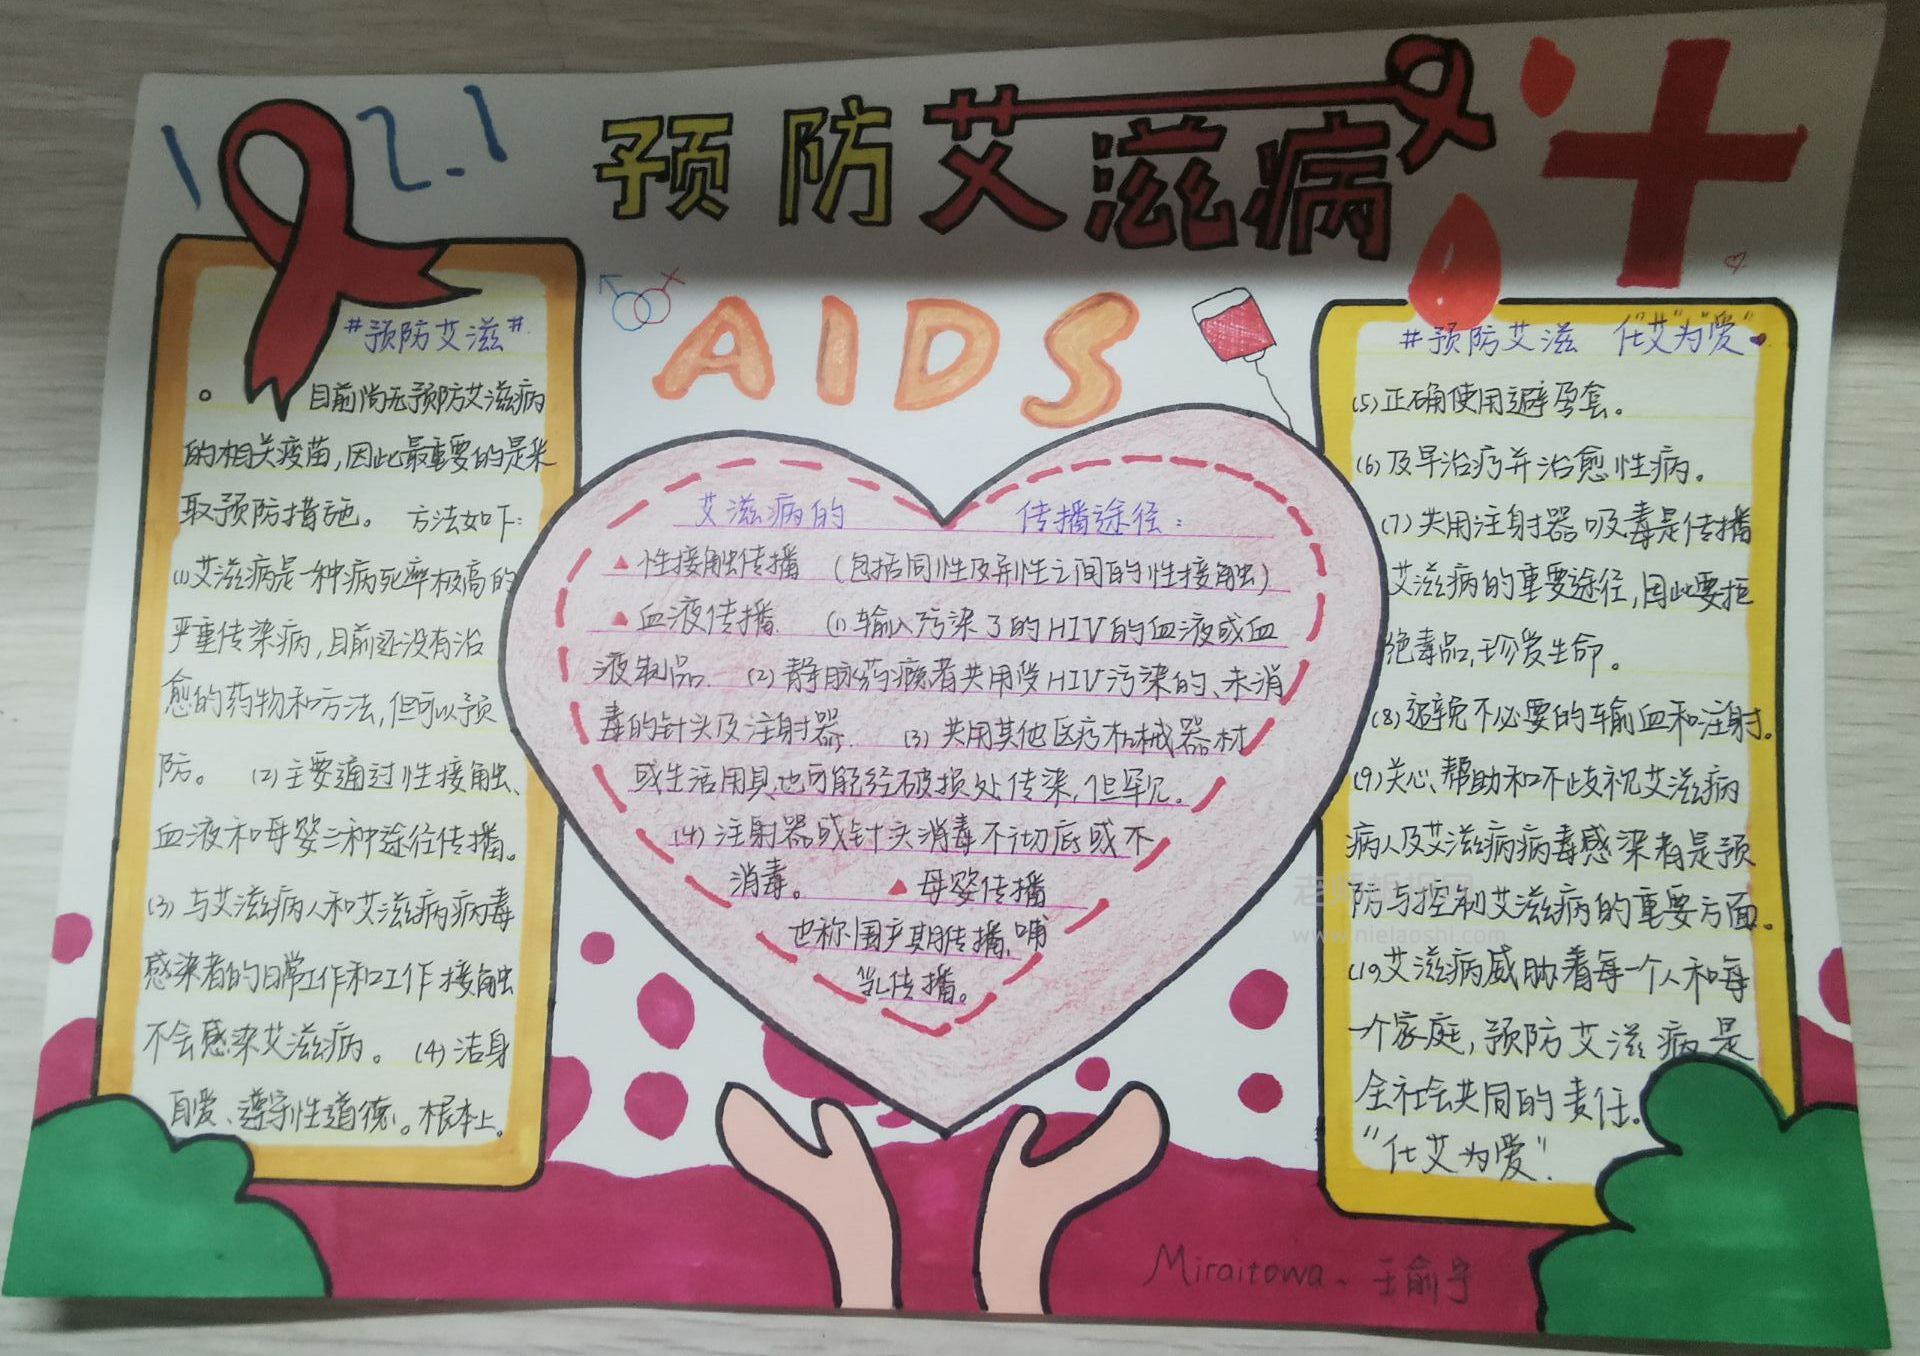 12.1
预防艾滋病
AIDS
#预防艾滋#
目前尚无预防艾滋病
的相关疫苗,因此最重要的是采
取预防措施。 方法如下:
(1)艾滋病是一种病死率极高的
严重传染病,目前还没有治
愈的药物和方法,但可以预
防。 (2)主要通过性接触、
血液和母婴三种途径传播。
(3)与艾滋病人和艾滋病病毒
感染者的日常工作和工作接触
不会感染艾滋病。 (4)洁身
自爱、遵守性道德。根本上。
艾滋病的 传播途径:
▲性接触传播 (包括同性及异性之间的性接触)
▲血液传播 (1)输入污染了的HIV的血液或血
液制品. (2)静脉药瘾者共用受HIV污染的、未消
毒的针头及注射器. (3)共用其他医疗机械器材
或生活用具也可能经破损处传染,但罕见。
(4)注射器或针头消毒不彻底或不
消毒。 ▲母婴传播
也称围产期传播.哺
乳传播。
#预防艾滋 仕"艾"为"爱"
(5)正确使用避孕套。
(6)及早治疗并治愈性病。
(7)共用注射器吸毒是传播
艾滋病的重要途径,因此要拒
绝毒品,珍爱生命。
(8)避免不必要的输血和注射。
(9)关心、帮助和不歧视艾滋病
病人及艾滋病病毒感染者是预
防与控制艾滋病的重要方面。
(10)艾滋病威胁着每一个人和每
一个家庭,预防艾滋病是
全社会共同的责任。
"仕艾为爱"!
Miraitowa、王俞宁
www.nielaoshi.com